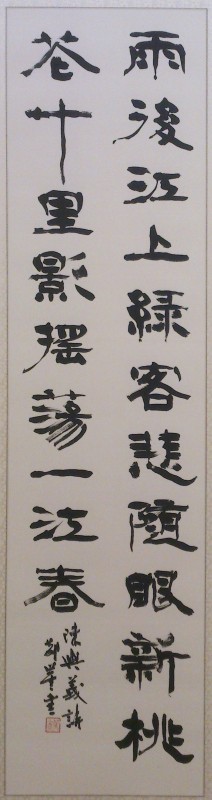 雨後江上綠客悲隨眼新桃
花十里影搖蕩一江春
陳與義詩